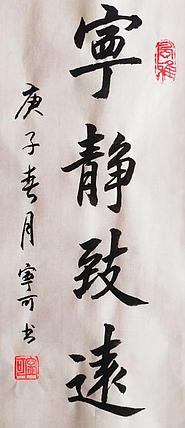 寧靜致遠
庚子春月寧可书